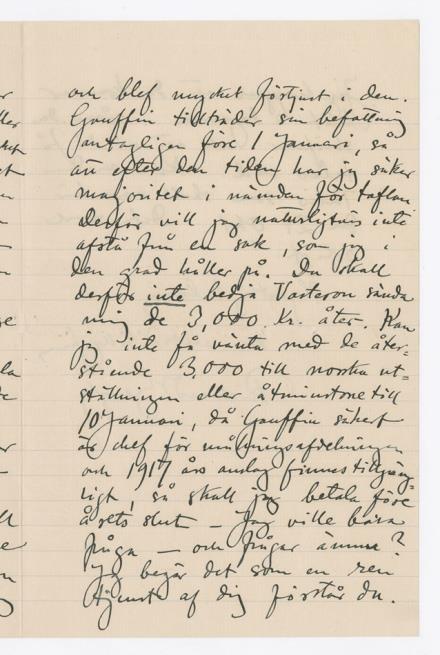 och blef mycket förtjust i den.
Gauffin tillträder sin befattning
antagligen före 1 Januari, så
att efter den tiden har jag säker
majoritet i nämnden för taflan
Derför vill jag naturligtvis inte
afstå från en sak, som jag i
den grad håller på. Du skall
derför inte bedja Vasteron sända
mig de 3,000 Kr. åter. Kan
jag inte få vänta med de åter=
stående 3.000 till norska ut=
ställningen eller åtminstone till
10 Januari, då Gauffin säkert
är chef för målningsafdelningen
och 1917 års anslag finnes tillgäng=
ligt, så skall jag betala före
årets slut – Jag ville bara
fråga – och frågar ännu?
Jag begär det som en ren
tjenst af dig förstår du.